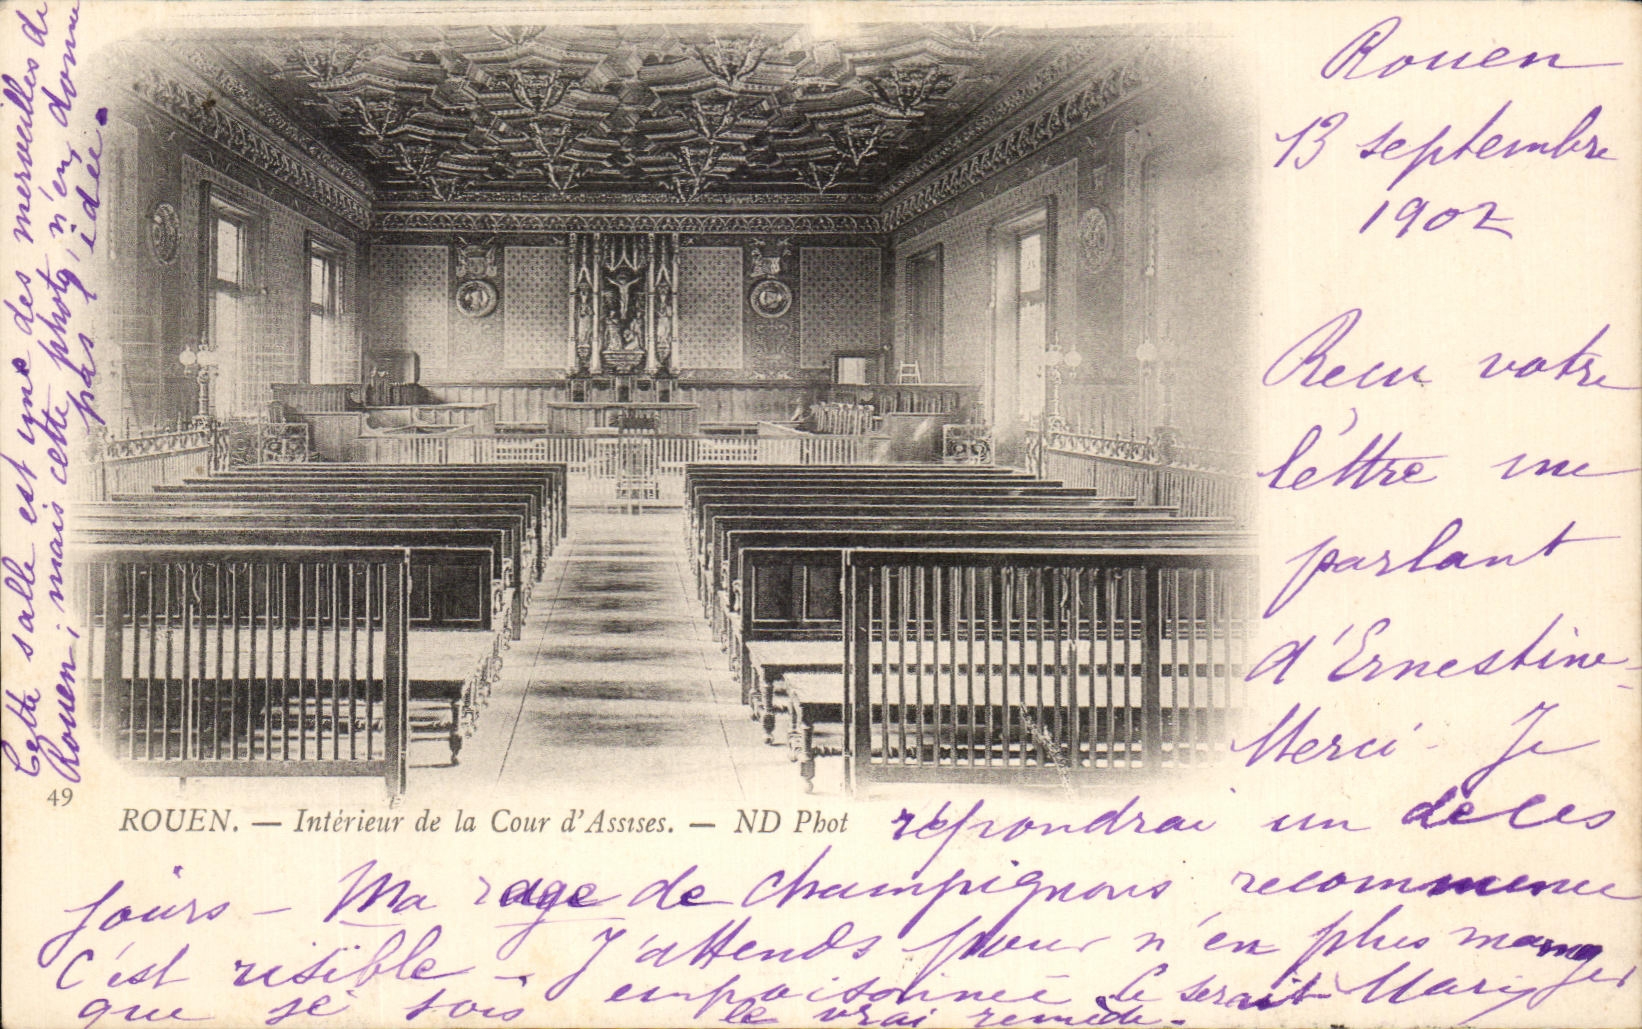 Rouen
13 septembre
1902
Recu votre
léttre me
parlant
d'Ernestine-
Merci - Je
répondrai un de ces
jours - Ma rage de champignons recommence
C'est risible - J'attends pour n'en plus manger
que je sois empoisonnée Ce serait
le vrai remède.
Cette salle est une des merveilles de
Rouen; mais cette photog. n'en donne
pas l'idée.
49
ROUEN. — Intérieur de la Cour d'Assises. — ND Phot